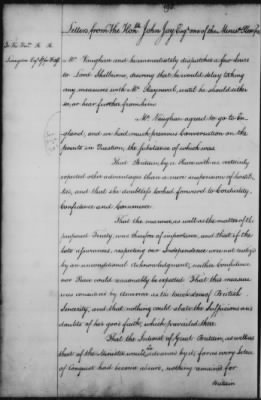 Letters from The Hon^ble John Jay Esq^r one of the Minis^s Plen^s &c
To the Hon^ble R. R.
Livingston Esq^r
Mr Vaughan and he immediately dispatched a few lines
to Lord Shelburne, desiring that he would delay taking
any measures with Mr Rayneval, until he should either
see, or hear further from him
Mr Vaughan agreed to go to En
gland, and we had much previous Conversation on the
points in Question, the substance of which was
That Britain, by a Peace with us certainly
expected other advantages than a mere suspension of hostili
ties, and that she doubtless looked forward to Cordiality,
Confidence and Commerce
That the manner, as well as the matter of the
proposed Treaty was therefore of importance, and that if the
late assurances, respecting our Independence were not realized
by an unconditional Acknowledgment, neither Confidence
nor Peace could reasonably be expected. That this measure
was considered by America as the touchstone of British
Sincerity, and that nothing could abate the Suspicions and
doubts of her good faith, which prevailed there
That the Interest of Great Britain, as well as
that of the Minister would be advanced by it; for as every Idea
of Conquest had become absurd, nothing remained for
Britain